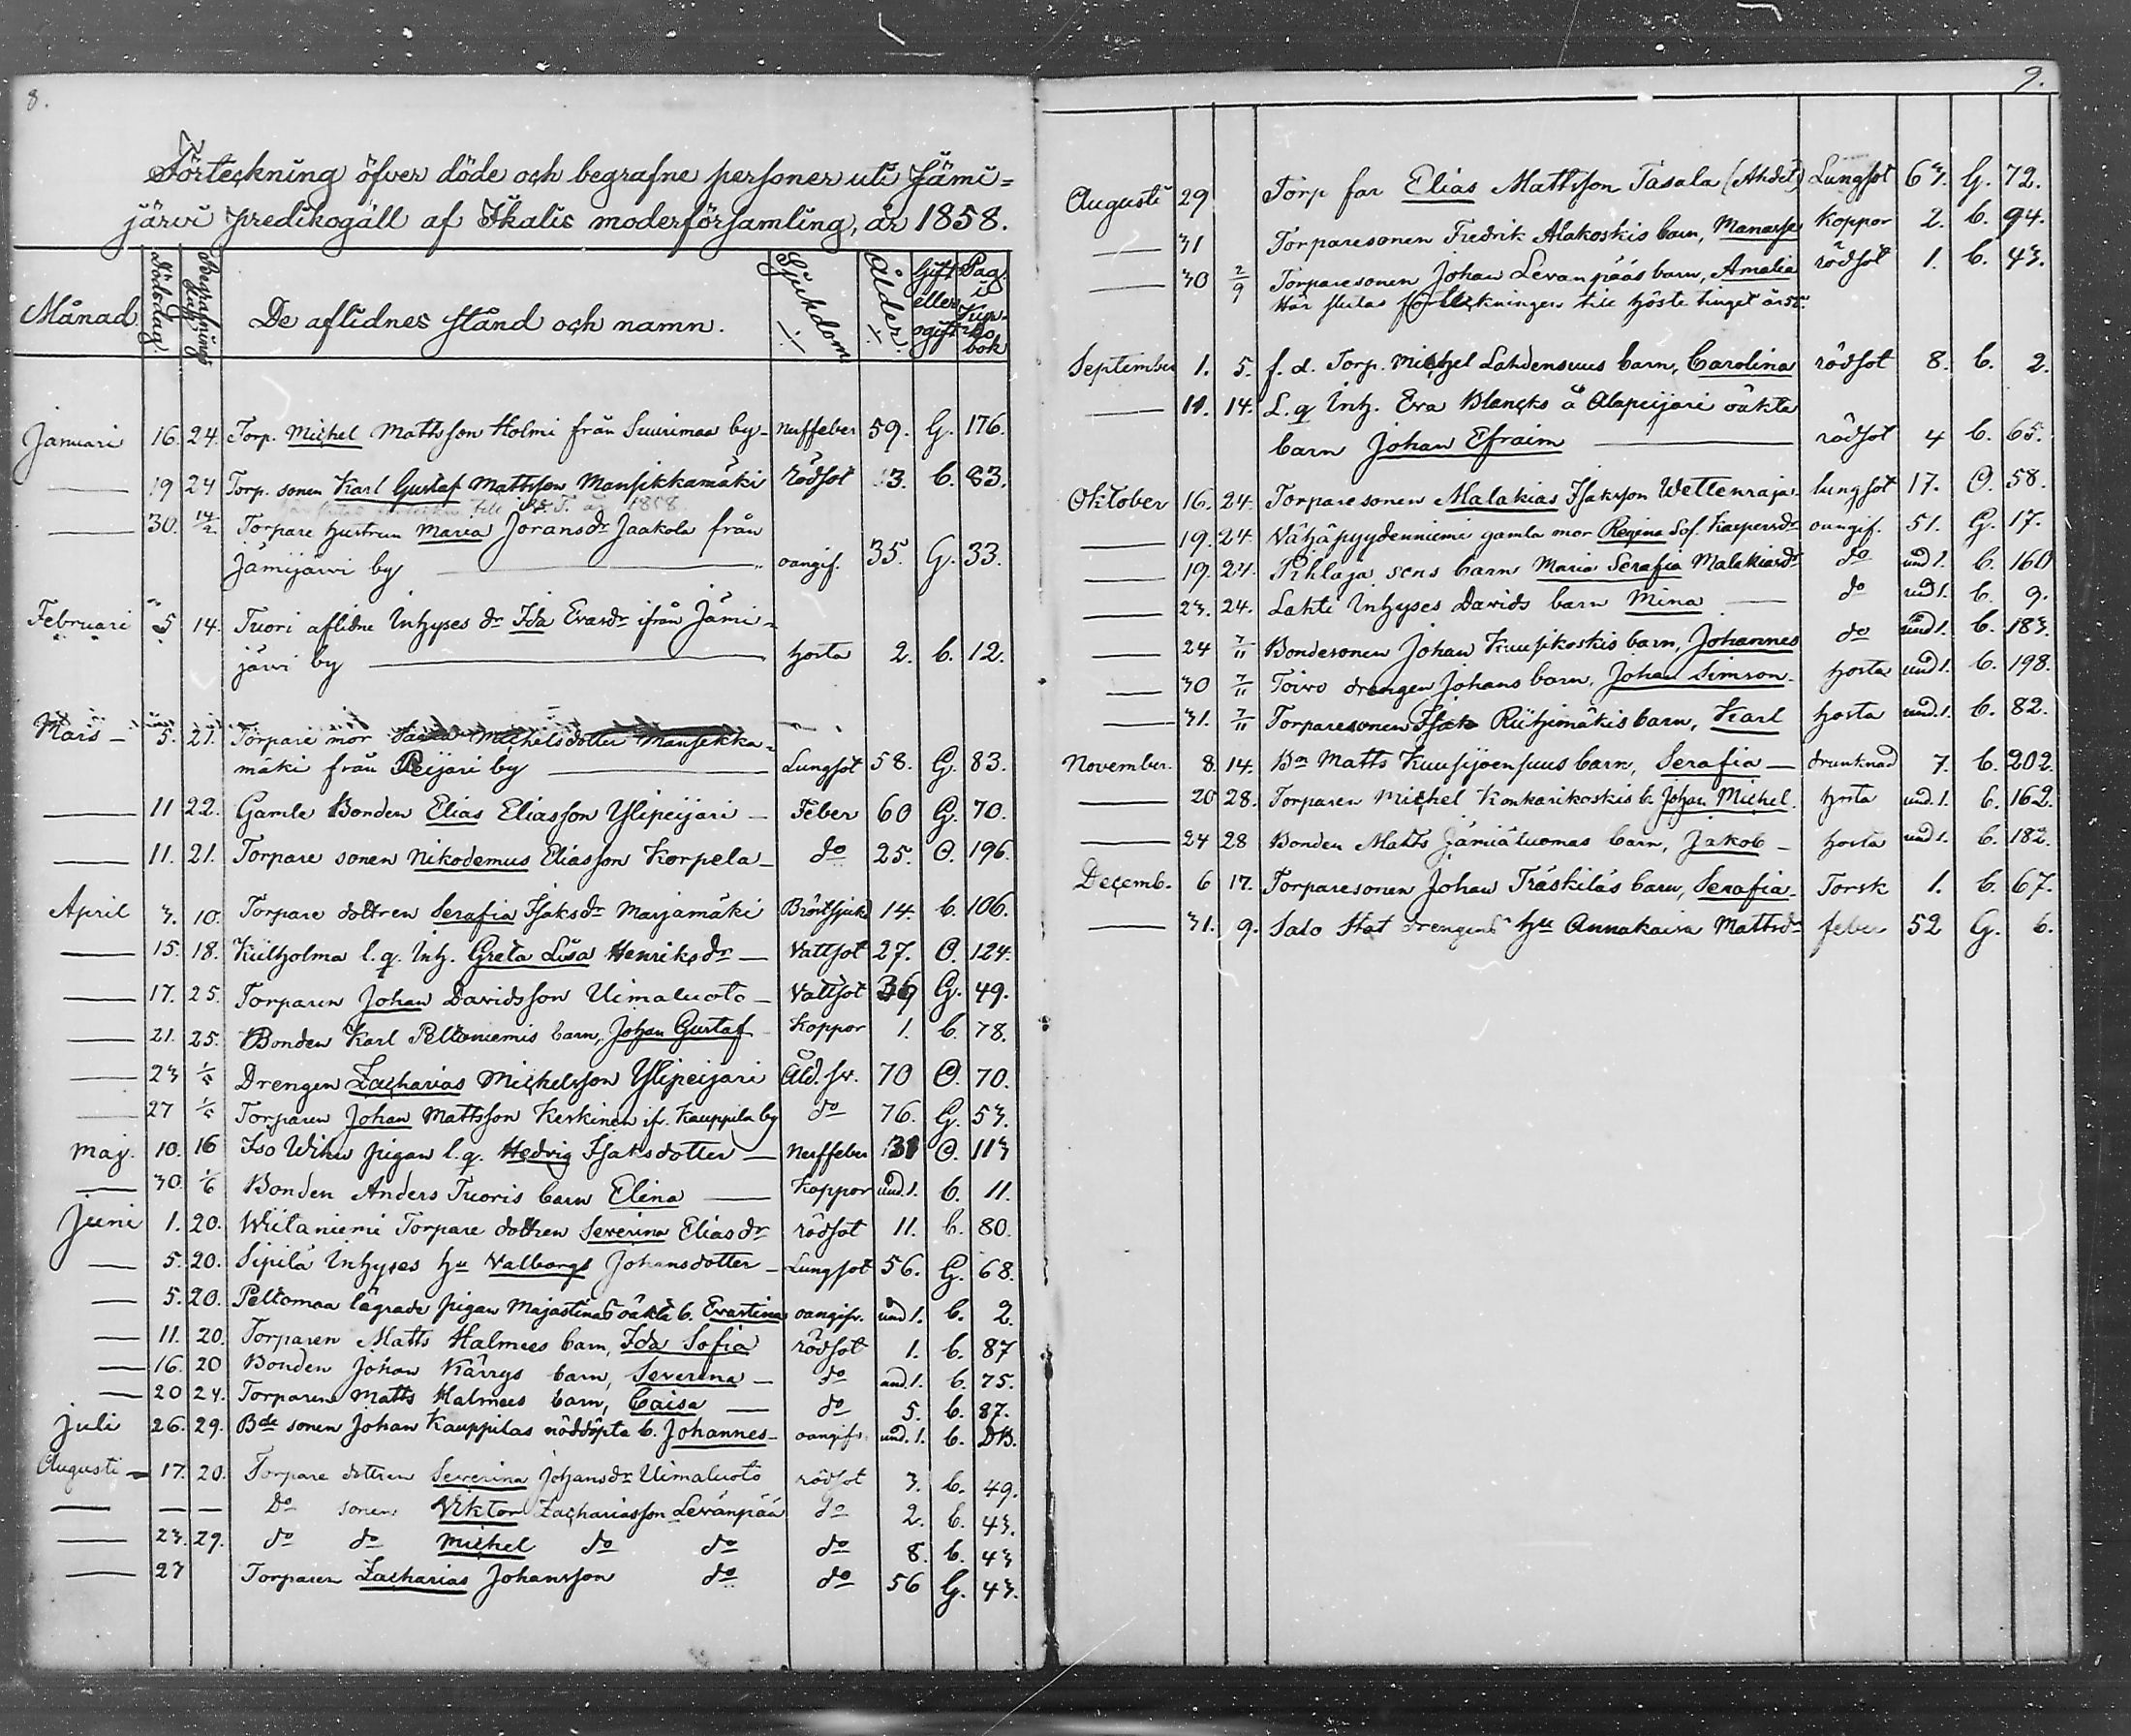 8.
Förteckning öfver döde och begrafne personer uti Jämi=
järvi predikogäll af Ikalis moderförsamling, år 1858.
Månad. Dödsdag. Begrafnings De aflidnes stånd och namn. Sjukdom Ålder. Gift eller ogift Pag. i bok
Januari 16. 24. Torp. Michel Mattsson Holmi från Suurimaa by- nerffeber 59. G. 176.
— 19 24 Torp. sonen Karl Gustaf Mattsson Mansikkamäki rödsot 3. b. 83.
till 1858.
— 30. 14/2 Torpare hustrun Maria Joransdr Jaakola från
Jämijärvi by — oangif. 35. G. 33.
Februari 5 14. Tuori aflidne Inhyses dr Ida Evasdr ifrån Jämi-
järvi by — hosta 2. b. 12.
Mars - 5. 21. Torpare mor Michelsdotter Mansikka-
mäki från Peijari by — Lungsot 58. G. 83.
— 11 22. Gamle Bonden Elias Eliasson Ylipeijari - Feber 60 G. 70.
— 11. 21. Torpare sonen Nikodemus Eliasson Korpela- do 25. O. 196.
April 3. 10. Torpare dottren Serafia Isaksdr Marjamäki Bröstsjuk 14. b. 106.
— 15. 18. Kiilholma l.q. Inh. Greta Lisa Henriksdr - Vattsot 27. O. 124.
— 17. 25. Torparen Johan Davidsson Uimaluoto - Vattsot 36 G. 49.
— 21. 25. Bonden Karl Peltoniemis barn, Johan Gustaf Koppor 1. b. 78.
— 23 1/5 Drengen Zacharias Michelsson Ylipeijari Åld. sv. 70 O. 70.
— 27 1/5 Torparen Johan Mattsson Keskinen if. Kauppila by do 76. G. 53.
Maj. 10. 16 Iso Wihu pigan l.q. Hedvig Isaksdotter - Nerffeber 31 O. 113
— 30 1/6 Bonden Anders Tuoris barn Elina — Koppor und 1. b. 11.
Juni 1. 20. Wiitaniemi Torpare dottren Severina Eliasdr rödsot 11. b. 80.
— 5. 20. Sipilä Inhyses hu Valborgs Johansdotter - Lungsot 56. G. 68.
— 5. 20. Peltomaa lägrade pigan Majastinas oäkta b. Evastina oangifv. und 1. b. 2.
— 11. 20. Torparen Matts Halmees barn, Ida Sofia rödsot 1. b. 87
— 16. 20 Bonden Johan Kärrys barn, Severina - do und. 1. b. 75.
— 20 24. Torparen Matts Halmees barn, Caisa — do 5. b. 87.
Juli 26. 29. Bde sonen Johan Kauppilas nöddöpta b. Johannes - oangifv. und. 1. b. DB.
Augusti - 17. 20. Torpare dottren Severina Johansdr Uimaluoto rödsot 3. b. 49.
— — — Do sonen Viktor Zachariasson Levänpää do 2. b. 43.
— 23. 29. do do Michel do do do 8. b. 43
— 27 Torparen Zacharias Johansson do do 56 G. 43.
9.
Augusti 29 Torp far Elias Mattsson Tasala Lungsot 63. G. 72.
— 31 Torparesonen Fredrik Alakoskis barn, Manasse Koppor 2. b. 94.
— 30 2/9 Torparesonen Johan Levanpääs barn, Amalia rödsot 1. b. 43.
Här slutas förteckningen till höste tinget år 58.
September 1. 5. f. d. Torp. Michel Lahdensuus barn, Carolina rödsot 8. b. 2.
— 11. 14. L.q Inh. Eva Blancks å Alapeijari oäkta
barn Johan Efraim — rödsot 4 b. 65.
Oktober 16. 24. Torparesonen Malakias Isaksson Wettenraja lungsot 17. O. 58.
— 19. 24. Vähäpyydenniemi gamla mor Regina Sof. Kaspersdr oangif. 51. G. 17.
— 19. 24. Pihlaja sons barn Maria Serafia Malakiasdr do und 1. b. 160
— 23. 24. Lahti Inhyses Davids barn Mina — do und 1. b. 9.
— 24 7/11 Bondesonen Johan Kuusikoskis barn, Johannes do und 1. b. 183.
— 30 7/11 Toivo drengen Johans barn, Johan Simson. hosta und 1. b. 198.
— 31. 7/11 Torparesonen Isak Riihimäkis barn, Karl hosta und. 1. b. 82.
November. 8. 14. Bn Matts Kuusijoensuus barn, Serafia — drunknad 7. b. 202.
— 20 28. Torparen Michel Konkarikoskis b. Johan Michel. hosta und. 1. b. 162.
— 24 28 Bonden Matts Jämiäluomas barn, Jakob - hosta und 1. b. 182.
Decemb. 6 17. Torparesonen Johan Träskiläs barn, Serafia. Torsk 1. b. 67.
— 31. 9. Salo Stat drengens hu Annakaisa Mattsdr feber 52 G. 6.